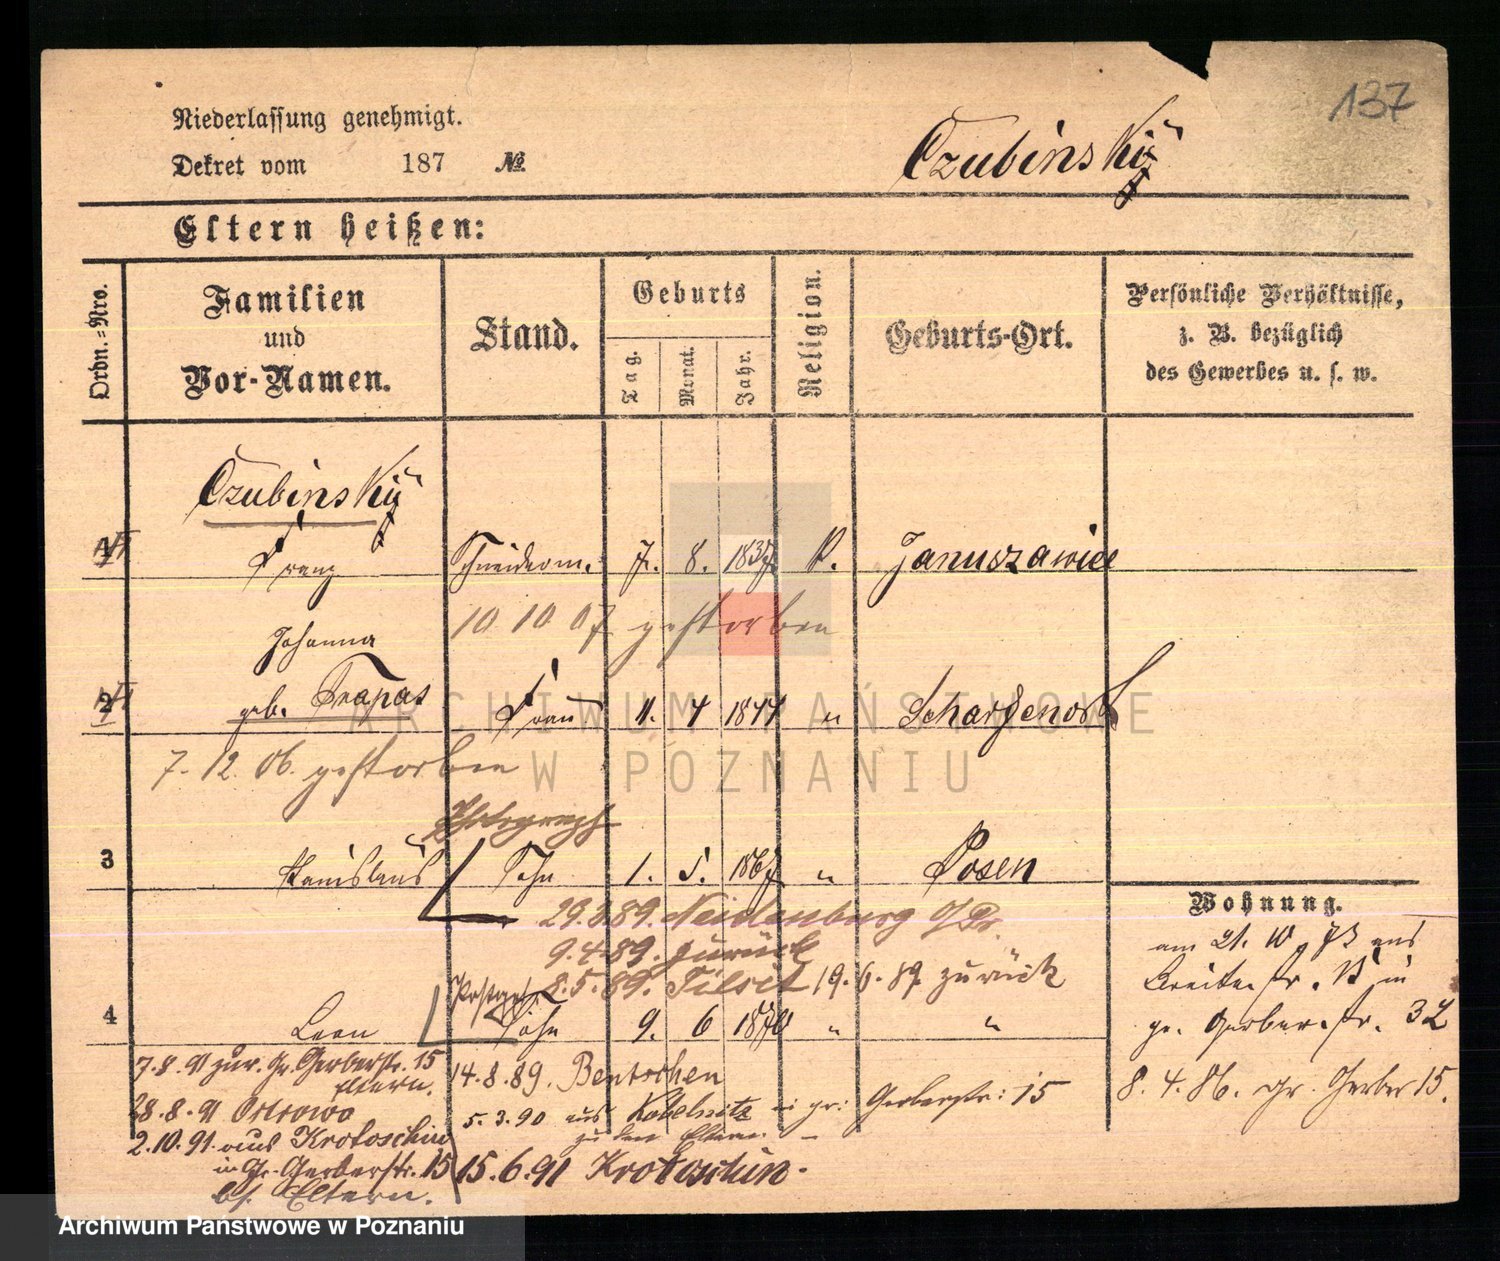 137
Niederlassung genehmigt.
Dekret vom 187 №
Czubinski
Eltern heißen:
Ordn.-Nro.
Familien und Vor-Namen.
Stand.
Geburts
Tag.
Monat.
Jahr.
Religion.
Geburts-Ort.
Persönliche Verhältnisse,
z. B. bezüglich
des Gewerbes u. s. w.
Czubinski
1 Franz Schneiderm. 7. 8. 1837 k. Januszawice
10 10 07 gestorben
Johanna
2 geb. Trapas Frau 11. 4 1844 " Scharfenort
7. 12. 06. gestorben
Photograph
3 Stanislaus Sohn 1. 5. 1867 " Posen
29.3.89. Neidenburg O/Pr.
9.4.89. zurück
8.5.89. Tilsit 19.6.89. zurück
4 Leon Sohn 9. 6 1870 " "
Wohnung.
am 21. 10. 73 aus
Breitestr. 15 in
gr. Gerberstr. 32
8. 4. 86. gr. Gerber 15.
7.8.91 zur. Gr. Gerberstr. 15
Eltern.
28.8.91 Ostrowo
2.10.91. aus Krotoschin
in Gr. Gerberstr. 15
bf. Eltern.
14.8.89. Bentschen
5.3.90 aus Kobelnitz in gr: Gerberstr: 15
zu den Eltern.
15.6.91 Krotoschin.
ARCHIWUM PAŃSTWOWE
W POZNANIU
Archiwum Państwowe w Poznaniu